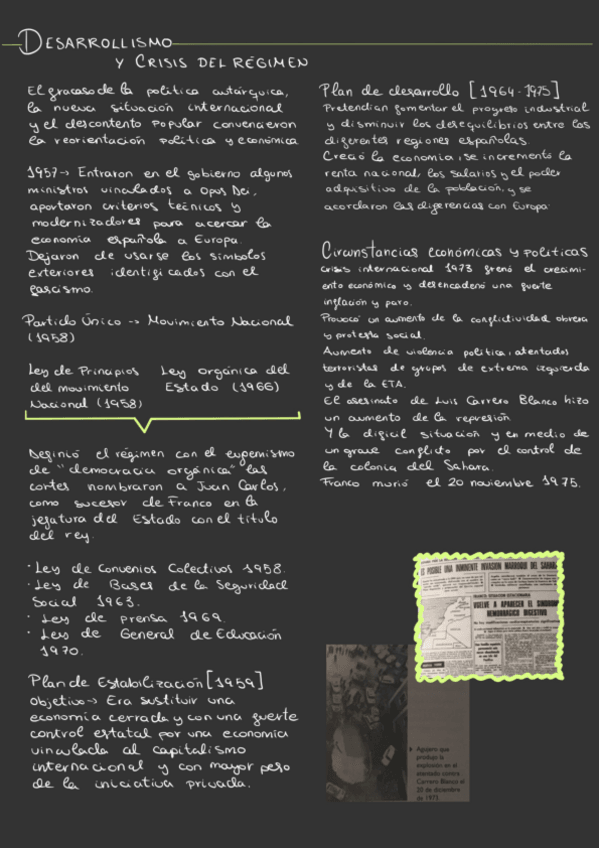 DESARROLLISMO
Y CRISIS DEL RÉGIMEN
El gracaso de la política autárquica,
la nueva situación internacional
y el descontento popular convencieron
la reorientación política y económica
1957→ Entraron en el gobierno algunos
ministros vinculados a Opus Dei,
aportaron criterios técnicos y
modernizadores para acercar la
economía española a Europa.
Dejaron de usarse los símbolos
exteriores identificados con el
fascismo.
Partido Único → Movimiento Nacional
(1958)
Ley de Principios
del movimiento
Nacional (1958)
Ley orgánica del
Estado (1966)
Definió el régimen con el eufemismo
de "democracia orgánica" las
cortes nombraron a Juan Carlos,
como sucesor de Franco en la
jefatura del Estado con el título
del rey.
· Ley de Convenios Colectivos 1958.
· Ley de Bases de la Seguridad
Social 1963.
· Ley de prensa 1969.
· Ley de General de Educación
1970.
Plan de Estabilización [1959]
Objetivo→ Era sustituir una
economía cerrada y con una fuerte
control estatal por una economía
vinculada al capitalismo
internacional y con mayor peso
de la iniciativa privada.
Plan de desarrollo [1964-1975]
Pretendían fomentar el progreso industrial
y disminuir los desequilibrios entre las
diferentes regiones españolas.
Creció la economía, se incrementó la
renta nacional, los salarios y el poder
adquisitivo de la población, y se
acordaron las diferencias con Europa.
Circunstancias económicas y políticas
crisis internacional 1973 frenó el crecimi-
ento económico y desencadenó una fuerte
inflación y paro.
Provocó un aumento de la conflictividad obrera
y protesta social.
Aumento de violencia política, atentados
terroristas de grupos de extrema izquierda
y de la ETA.
El asesinato de Luis Carrero Blanco hizo
un aumento de la represión
Y la difícil situación y en medio de
un grave conflicto por el control de
la colonia del Sahara.
Franco murió el 20 noviembre 1975.
ES POSIBLE UNA INMINENTE INVASION MARROQUI DEL SAHARA
VUELVE A APARECER EL SINDROME
HEMORRAGICO DIGESTIVO
Agujero que
produjo la
explosión en el
atentado contra
Carrero Blanco el
20 de diciembre
de 1973.